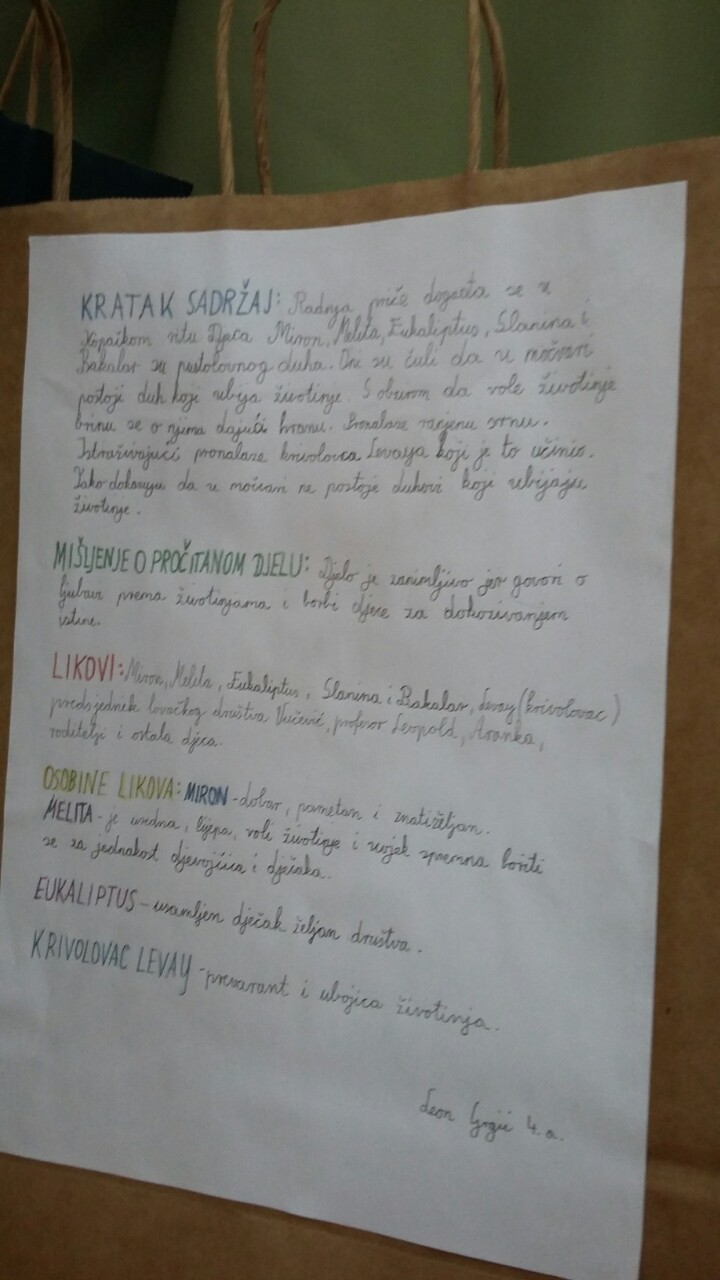 KRATAK SADRŽAJ: Radnja priče događa se u
Kopačkom ritu Djeca Miron, Melita, Eukaliptus, Slanina i
Bakalar su pustolovnog duha. Oni su čuli da u močvari
postoji duh koji ubija životinje. S obzirom da vole životinje
brinu se o njima dajući hranu. Pronalaze ranjenu srnu.
Istraživajući pronalaze krivolovca Levaya koji je to učinio.
Tako dokazuju da u močvari ne postoje duhovi koji ubijaju
životinje.
MIŠLJENJE O PROČITANOM DJELU: Djelo je zanimljivo jer govori o
ljubavi prema životinjama i borbi djece za dokazivanjem
istine.
LIKOVI: Miron, Melita, Eukaliptus, Slanina i Bakalar, Levay (krivolovac)
predsjednik lovačkog društva Vučević, profesor Leopold, Aranka,
roditelji i ostala djeca.
OSOBINE LIKOVA: MIRON - dobar, pametan i znatiželjan.
MELITA - je uredna, lijepa, voli životinje i uvijek spremna boriti
se za jednakost djevojčica i dječaka.
EUKALIPTUS - usamljen dječak željan društva.
KRIVOLOVAC LEVAY - prevarant i ubojica životinja.
Leon Grgić 4. a.